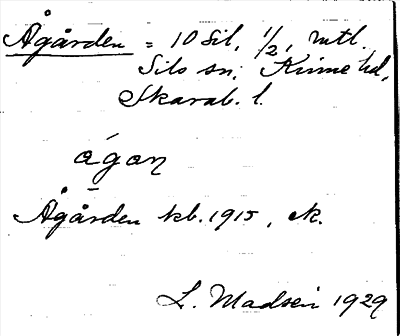 Ågården = 10 Sil, 1/2, mtl.
Sils sn, Kinne hd,
Skarab. l.
ágaɲ
Ågården kb. 1915, ek.
L. Madsén 1929